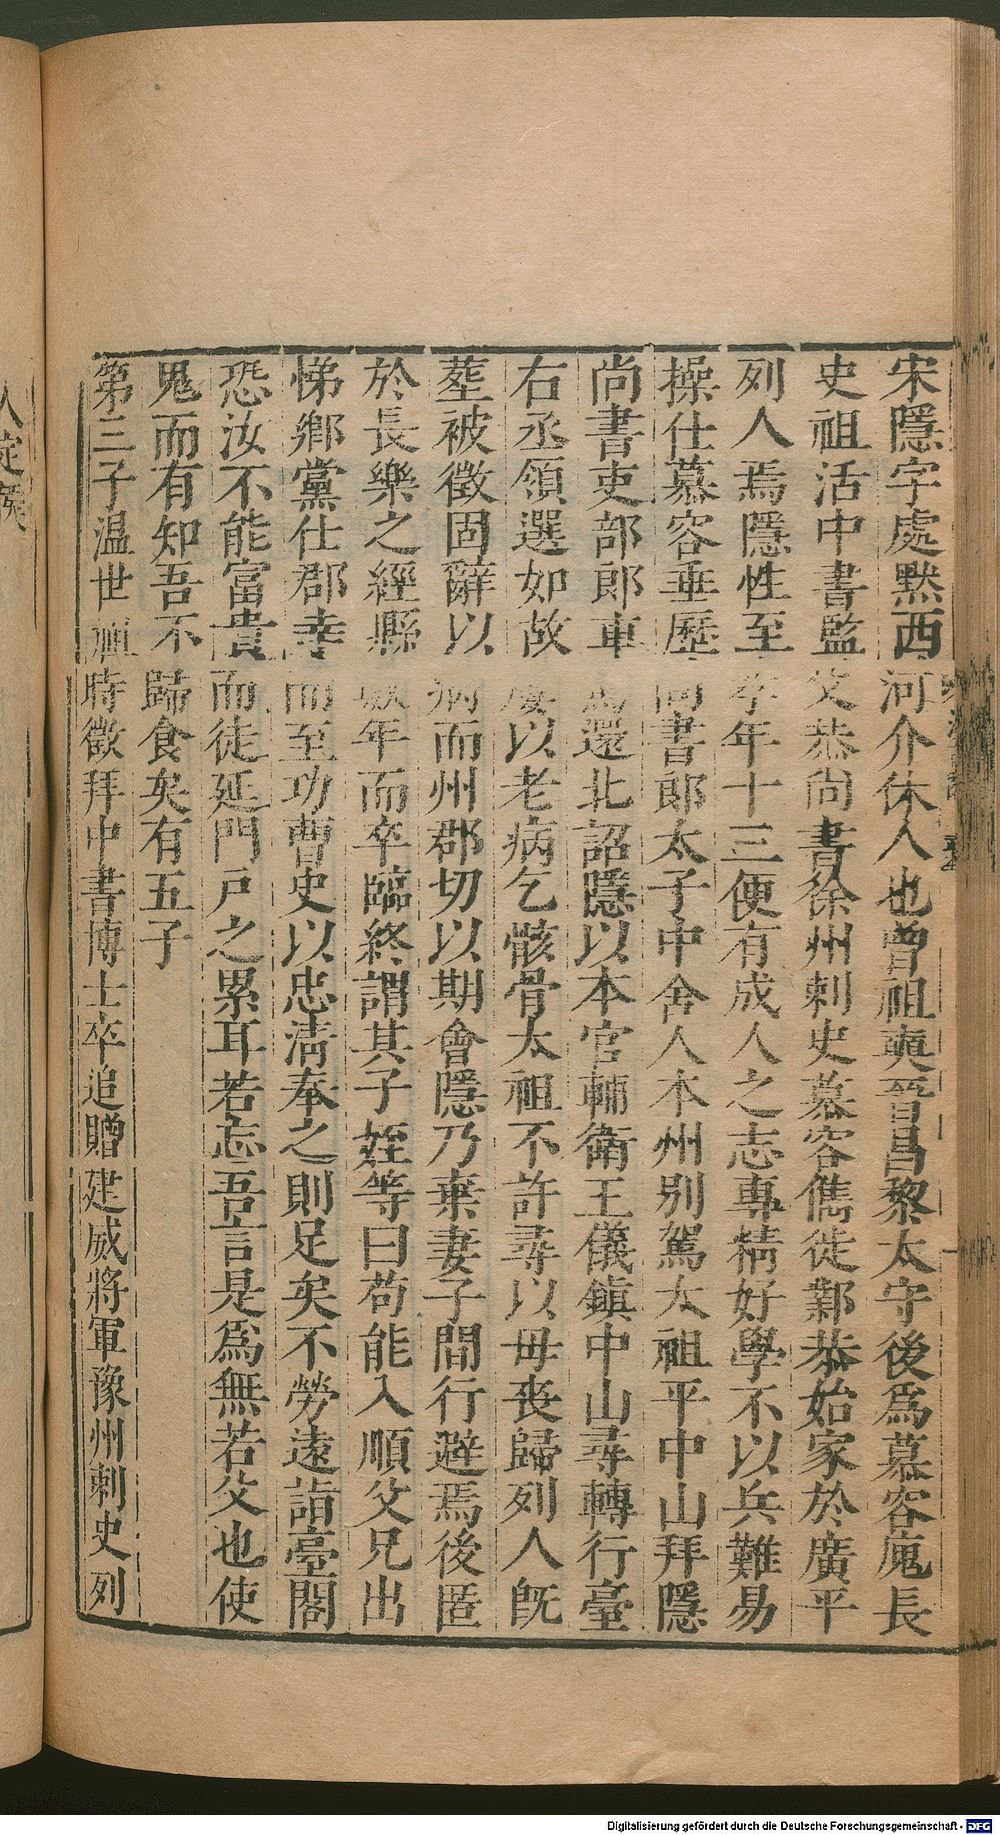 宋隱字處默西河介休人也曾祖奭晉昌黎太守後爲慕容廆長
史祖活中書監父恭尚書徐州刺史慕容儁徙鄴恭始家於廣平
列人焉隱性至孝年十三便有成人之志專精好學不以兵難易
操仕慕容垂歷尚書郎太子中舍人本州別駕太祖平中山拜隱
尚書吏部郎車駕還北詔隱以本官輔衛王儀鎮中山尋轉行臺
右丞領選如故屢以老病乞骸骨太祖不許尋以母喪歸列人旣
塟被徵固辭以病而州郡切以期會隱乃棄妻子間行避焉後匿
於長樂之經縣數年而卒臨終謂其子姪等曰苟能入順父兄出
悌鄉黨仕郡幸而至功曹史以忠清奉之則足矣不勞遠詣臺閣
恐汝不能富貴而徒延門戶之累耳若忘吾言是爲無若父也使
鬼而有知吾不歸食矣有五子
第三子温世祖時徵拜中書博士卒追贈建威將軍豫州刺史列
人定侯
Digitalisierung gefördert durch die Deutsche Forschungsgemeinschaft - DFG